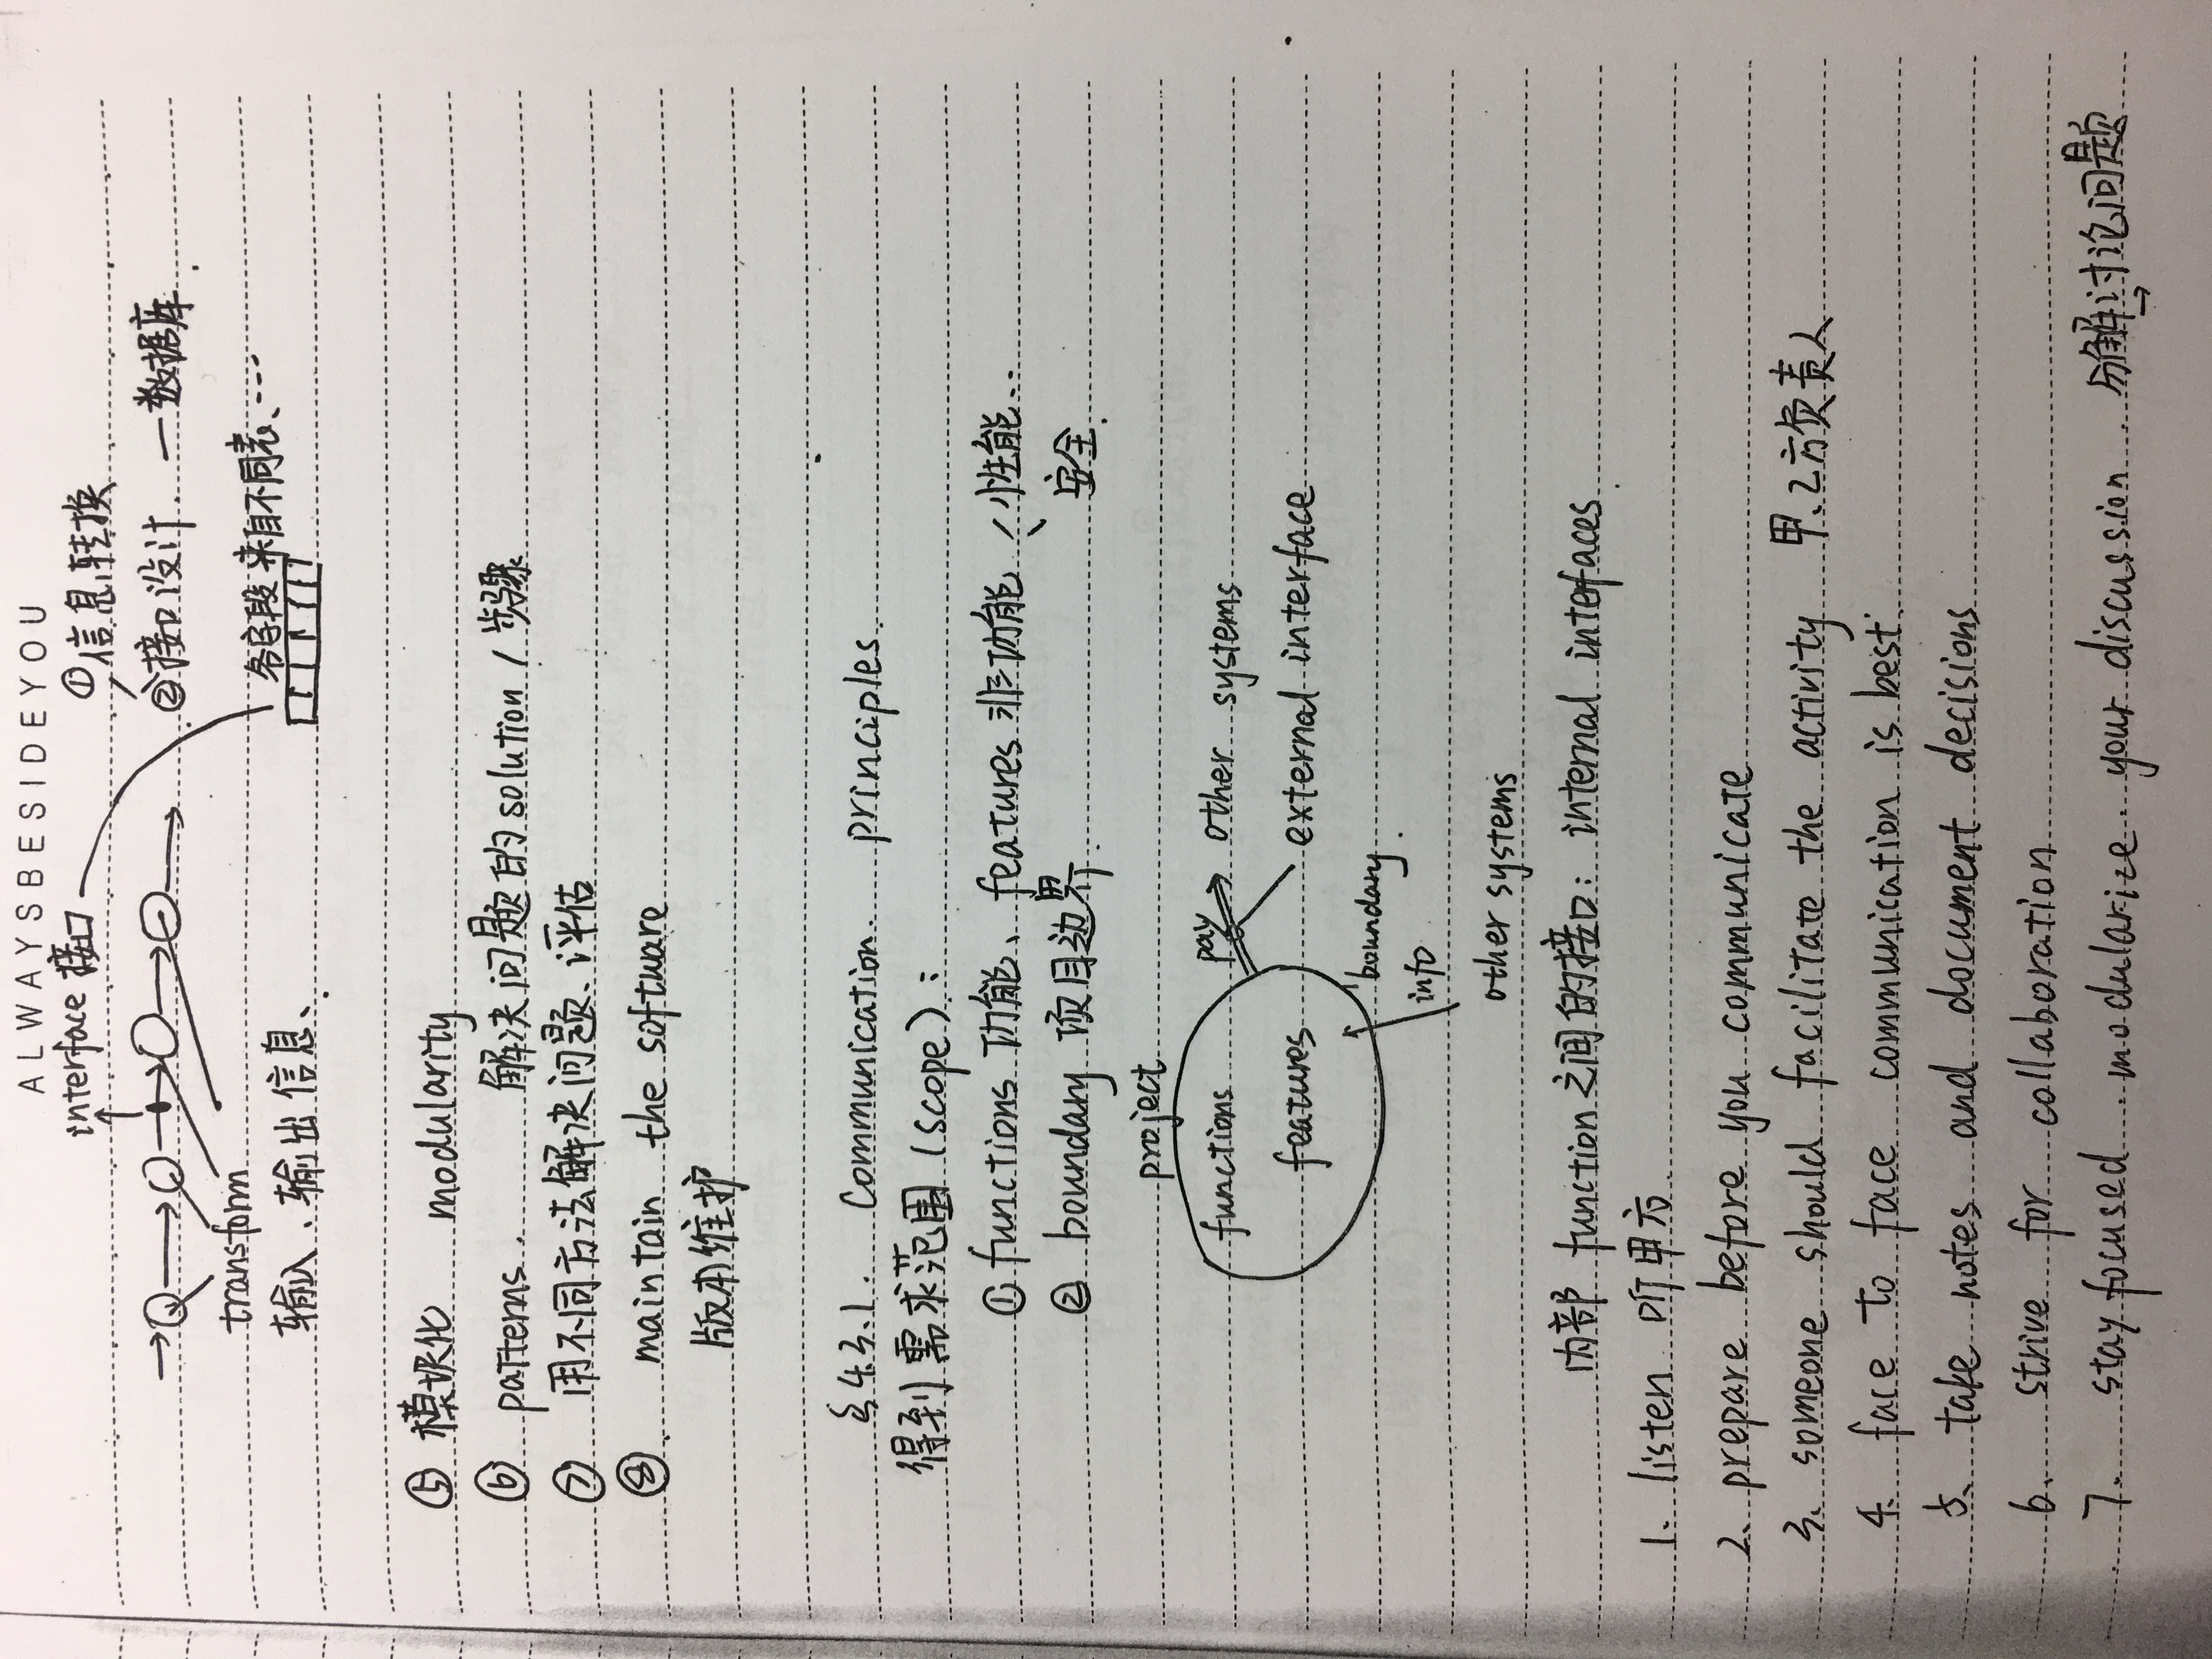 ALWAYSBESIDEYOU
interface 接口
① 信息转换
② 接口设计. —数据库.
transform
各字段来自不同表、…
输入、输出信息、
⑤ 模块化 modularity
⑥ patterns. 解决问题的solution / 步骤
⑦ 用不同方法解决问题、评估
⑧. maintain the software
版本维护
§4.3.1. Communication. principles.
得到需求范围 (scope):
① functions 功能、features 非功能 性能..
② boundary 项目边界. 安全.
project
functions pay other systems
features external interface
boundary.
info
other systems
内部 function之间的接口: internal interfaces.
1. listen 听甲方.
2、prepare before you communicate
3、someone should facilitate the activity 甲、乙方负责人
4. face to face communication is best.
5、take notes and document decisions
6、strive for collaboration
7. stay focused. modularize. your discussion. 分解讨论问题